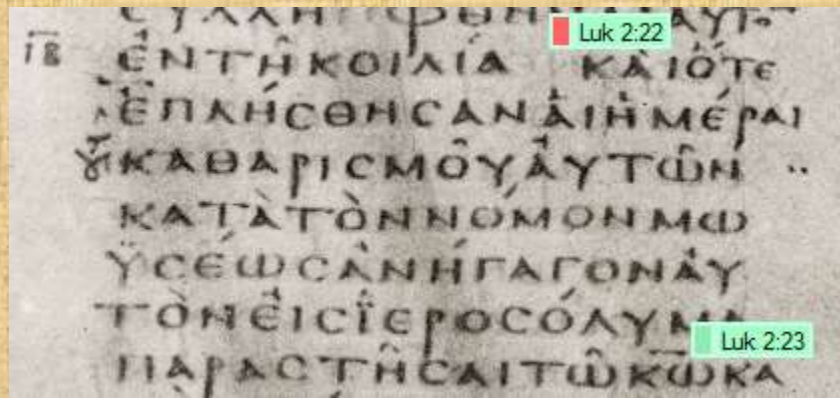 Luk 2:22
ιβ ἐΝΤΗ͂ΚΟΙΛΊΑ ΚΑῚὍΤΕ
ἘΠΛΉϹΘΗϹΑΝἉΙἩΜΈΡΑΙ
ΚΑΘΑΡΙϹΜΟΥ͂ἈΥΤΩ͂Ν
ΚΑΤᾺΤῸΝΝΌΜΟΝΜΩ
ΫϹΈΩϹἈΝΉΓΑΓΟΝἈΥ
ΤῸΝἘΙϹΪΕΡΟϹΌΛΥΜΑ
Luk 2:23
ΠΑΡΑϹΤΗ͂ϹΑΙΤΩ͂Κ̅Ω̅ΚΑ